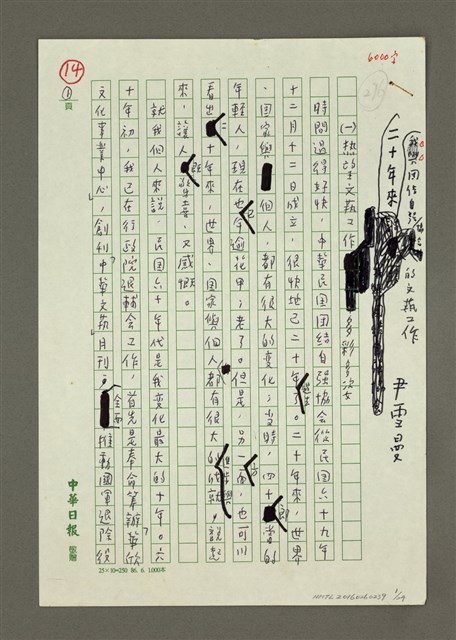 6000字
276
14
①頁
我與團結自強協會的文藝工作
二十年來
尹雪曼
(一)熱愛文藝工作多彩多姿
時間過得好快,中華民國團結自強協會從民國六十九年
十二月十二日成立,很快地已二十年了。二十年來,世界
、國家與個人,都有很大的變化;當時,四十郎當的
年輕人,現在也已年逾花甲;老了。但是,另一方面,也可以
看出二十年來,世界、國家與個人都有很大的成就,說起
來,讓人既驚喜,又感慨。
就我個人來說,民國六十年代是我變化最大的十年。六
十年初,我已在行政院退輔會工作,首先是奉命籌辦華欣
文化事業中心,創刊中華文藝月刊;全面推動國軍退除役
中華日報 稿箋
25×10=250 86. 6. 1,000本
NMTL20160060039 1/29